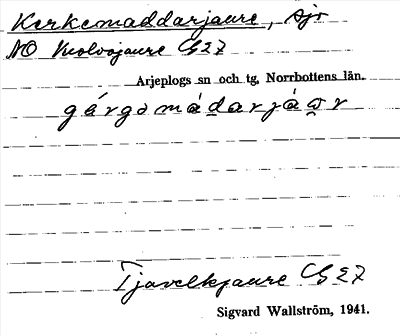 Kerkemaddarjaure, sjö
NO Vuolvojaure G27
Arjeplogs sn och tg, Norrbottens län.
gárgə máḏarjáu̯r
Tjavelkjaure G27
Sigvard Wallström, 1941.